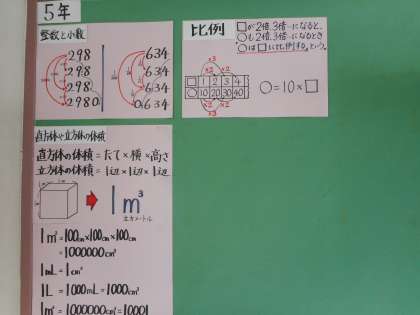 5年
整数と小数
2.98
29.8
298
2980
634
63.4
6.34
0.634
比例
□が2倍、3倍…になると、
○も2倍、3倍…になるとき
○は□に比例する。という。
×3
×2 ×2
□ 1 2 3 4
○ 10 20 30 40
×2 ×2
×3
○=10×□
直方体や立方体の体積
直方体の体積=たて×横×高さ
立方体の体積=1辺×1辺×1辺
1m³
立方メートル
1m³=100cm×100cm×100cm
=1000000cm³
1mL=1cm³
1L=1000mL=1000cm³
1m³=1000000cm³=1000L